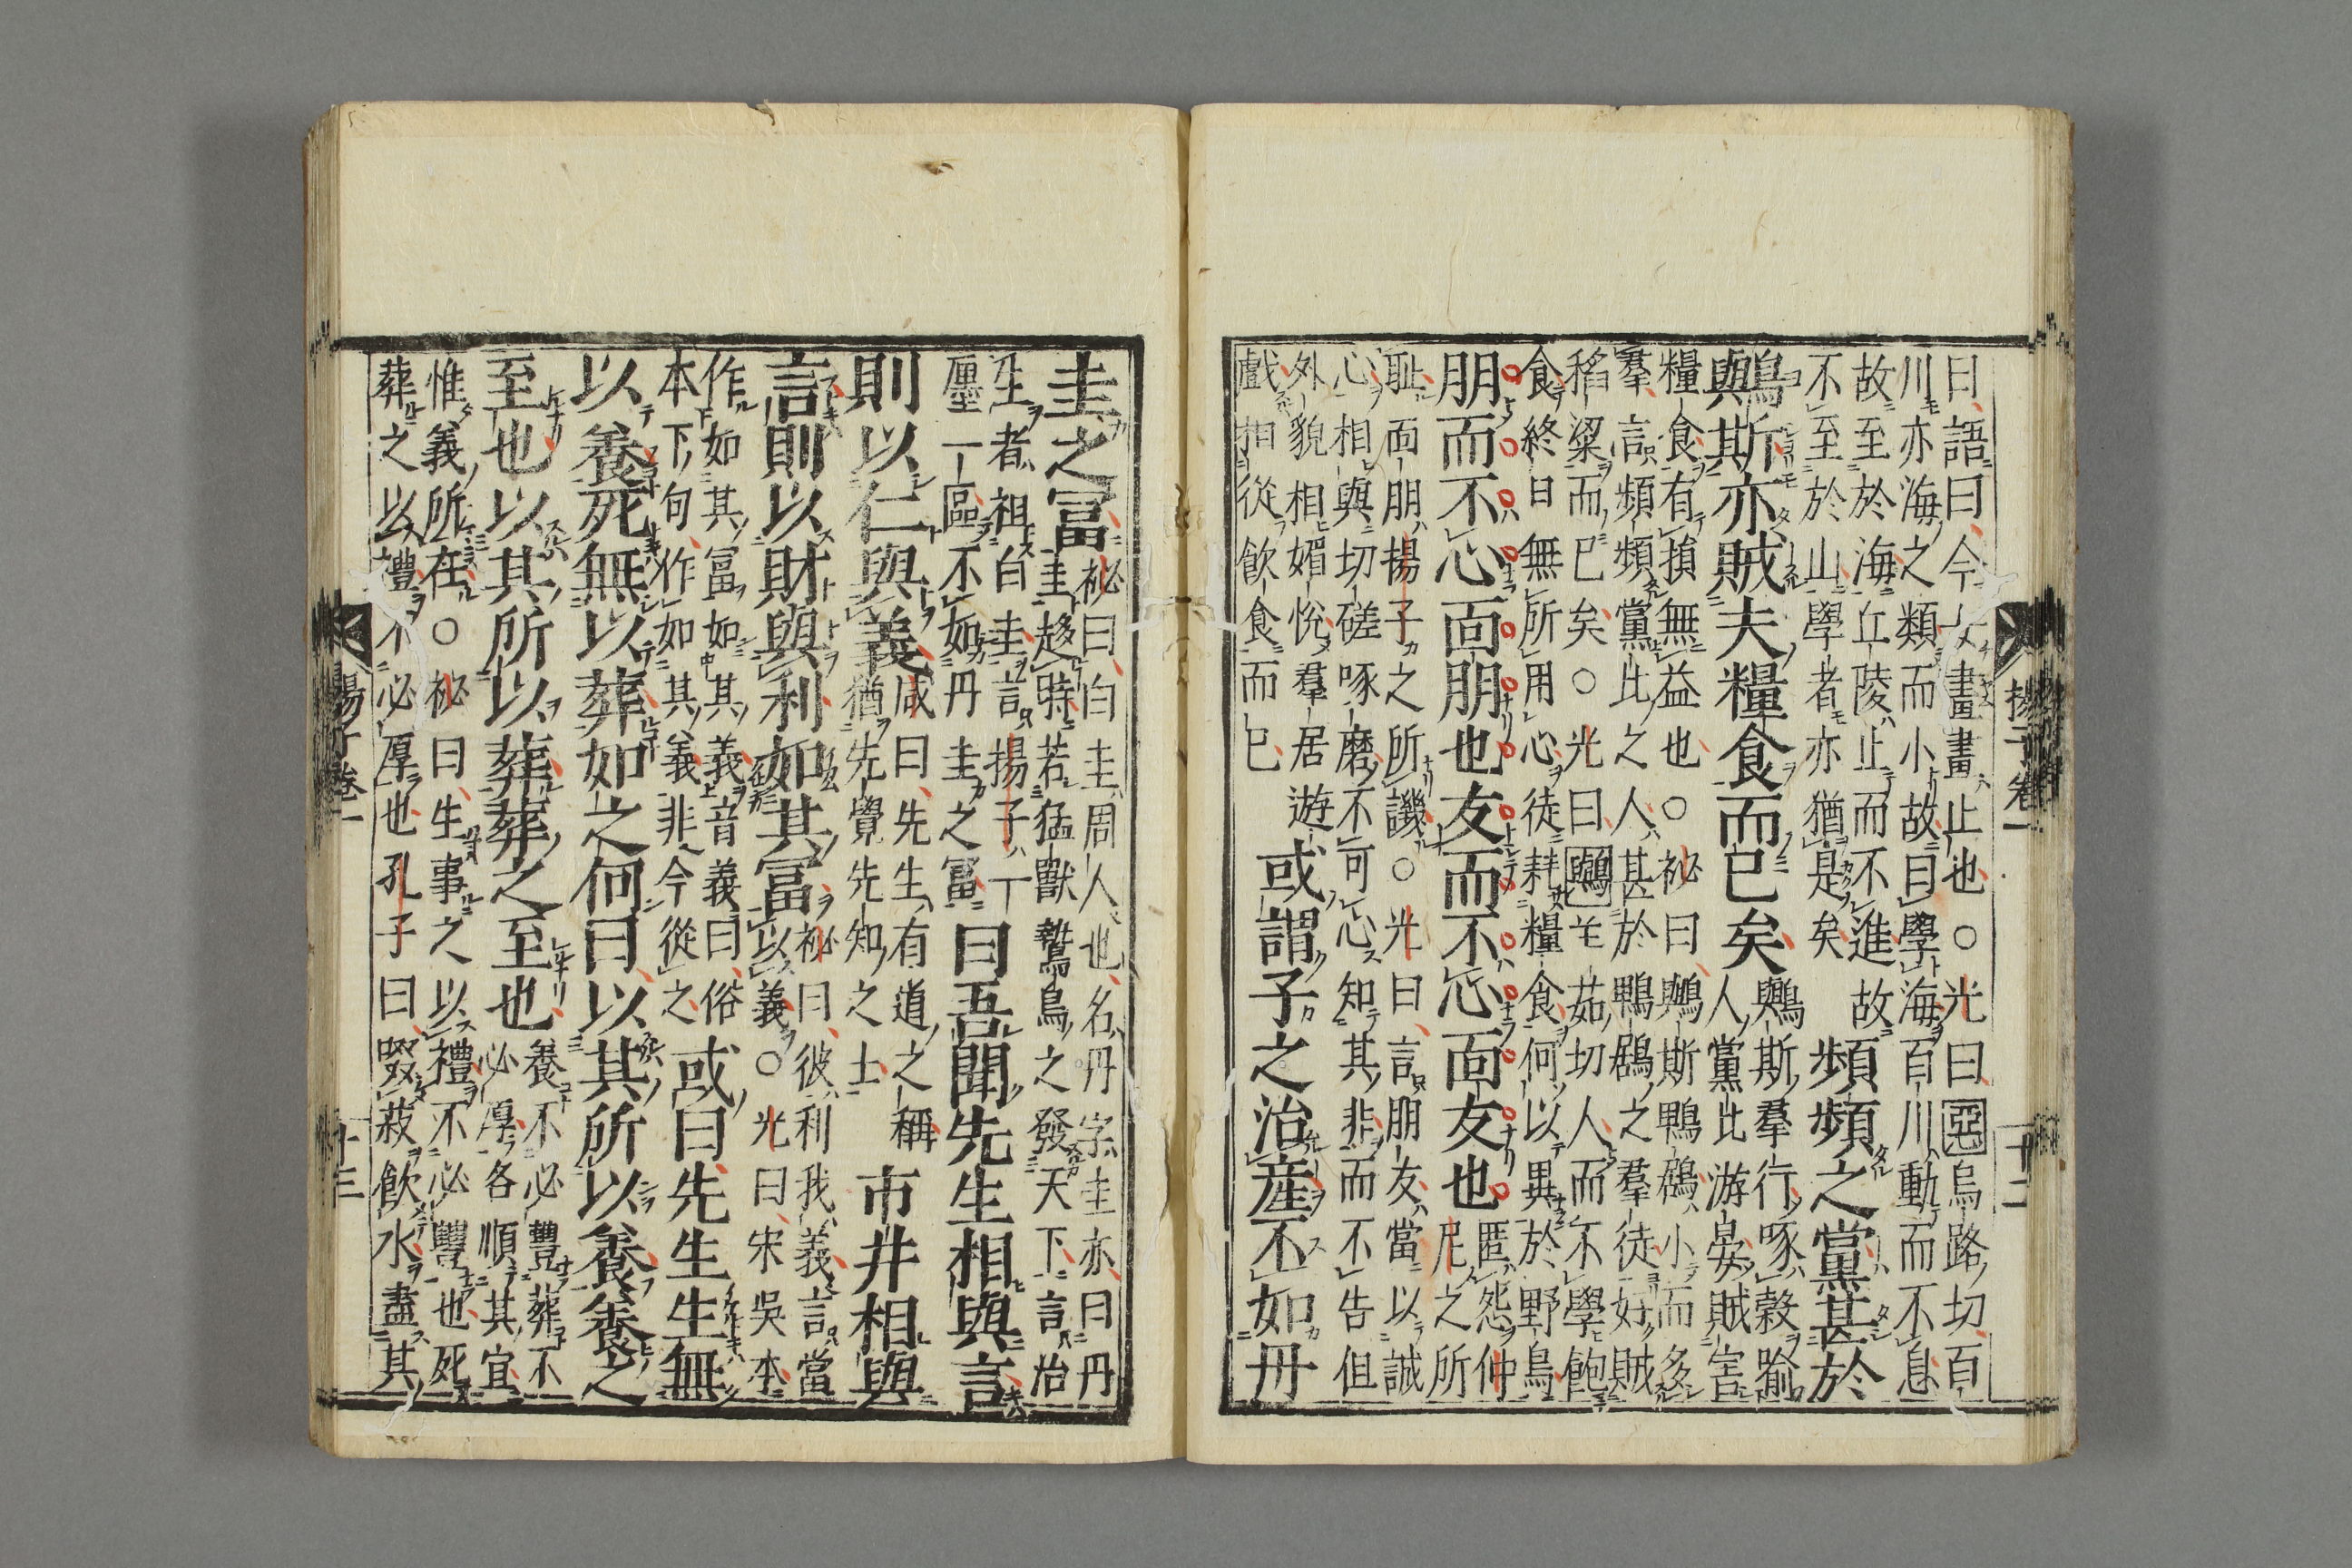 揚子卷一 十二
曰語曰今女畫畫止也○光曰惡烏路切百
川亦海之類而小故曰學海百川動而不息
故至於海丘陵止而不進故
不至於山學者亦猶是矣
頻頻之黨甚於
鸒斯亦賊夫糧食而已矣
鸒斯羣行啄穀踰
人黨比游晏賊害
糧食有損無益也○祕曰鸒斯鴨鶂小而多
羣言頻頻黨比之人甚於鴨鶂之羣徒好賊
稻粱而已矣○光曰鸒羊茹切人而不學飽
食終日無所用心徒耗糧食何以異於野鳥
朋而不心面朋也友而不心面友也
匿怨仲
尼之所
耻面朋揚子之所譏○光曰言朋友當以誠
心相與切磋啄磨不可心知其非而不告但
外貌相媚悅羣居遊
戲相從飲食而已
或謂子之治產不如丹
圭之冨
祕曰白圭周人也名丹字圭亦曰丹
圭趍時若猛獸鷙鳥之發天下言治
生者祖白圭言揚子一
廛一區不如丹圭之冨
曰吾聞先生相與言
則以仁與義
咸曰先生有道之稱
猶先覺先知之士
市井相與
言則以財與利如其冨
祕曰彼利我義言當
以義○光曰宋吳本
作如其冨如其義音義曰俗
本下句作如其義非今從之
或曰先生生無
以養死無以葬如之何曰以其所以養養之
至也以其所以葬葬之至也
養不必豐葬不
必厚各順其宜
惟義所在○祕曰生事之以禮不必豐也死
葬之以禮不必厚也孔子曰啜菽飲水盡其
揚子卷一 十三